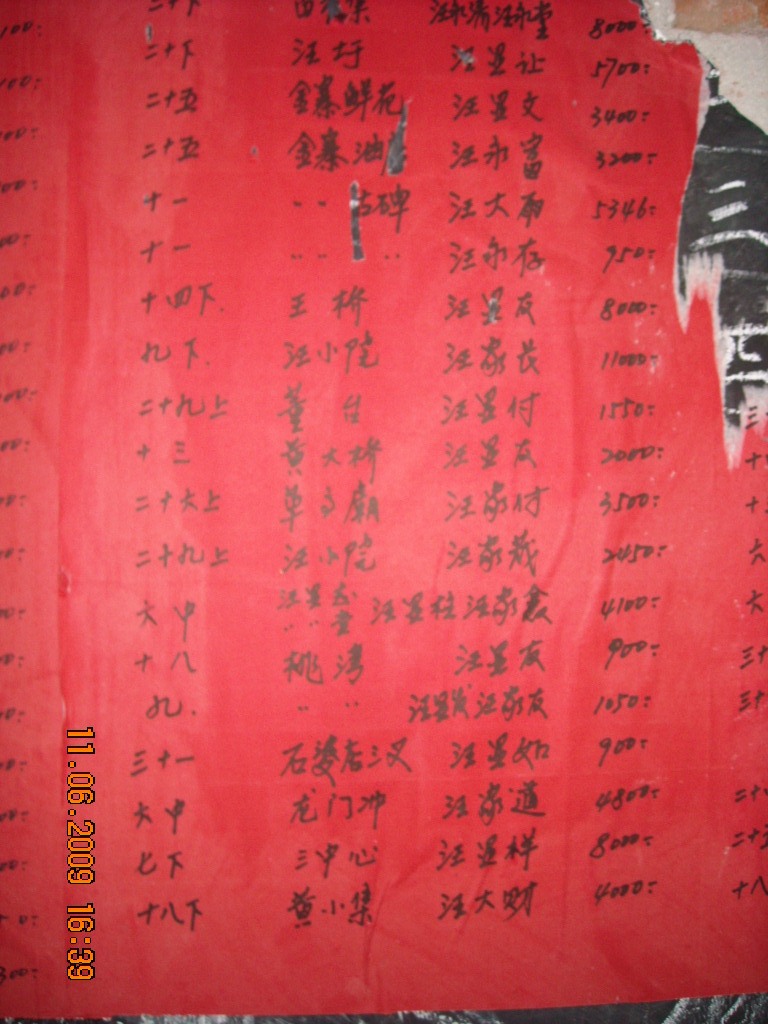 二十下 集 汪永清 汪永堂 8000:
二十下 汪圩 汪显让 5700:
二十五 金寨鲜花 汪显文 3400:
二十五 金寨油 汪永富 3200:
十一 〃 〃 古碑 汪大雨 5346:
十一 〃 〃 〃 汪永存 950:
十四下. 王桥 汪显友 8000:
九下. 汪小院 汪家茂 11000:
二十九上 董台 汪显付 1550:
十三 黄大桥 汪显友 2000:
二十六上 单 庙 汪家付 3500:
二十九上 汪小院 汪家茂 2450:
六中 汪显 汪显柱 汪家鑫 4100:
〃 〃
十八 桃湾 汪显友 900:
九. 〃 〃 汪显发 汪家友 1050:
三十一 石婆店三叉 汪显如 900:
六中 龙门冲 汪家道 4800:
七下 三中心 汪显祥 8000:
十八下 黄小集 汪大财 4000:
三
四
11.06.2009 16:39